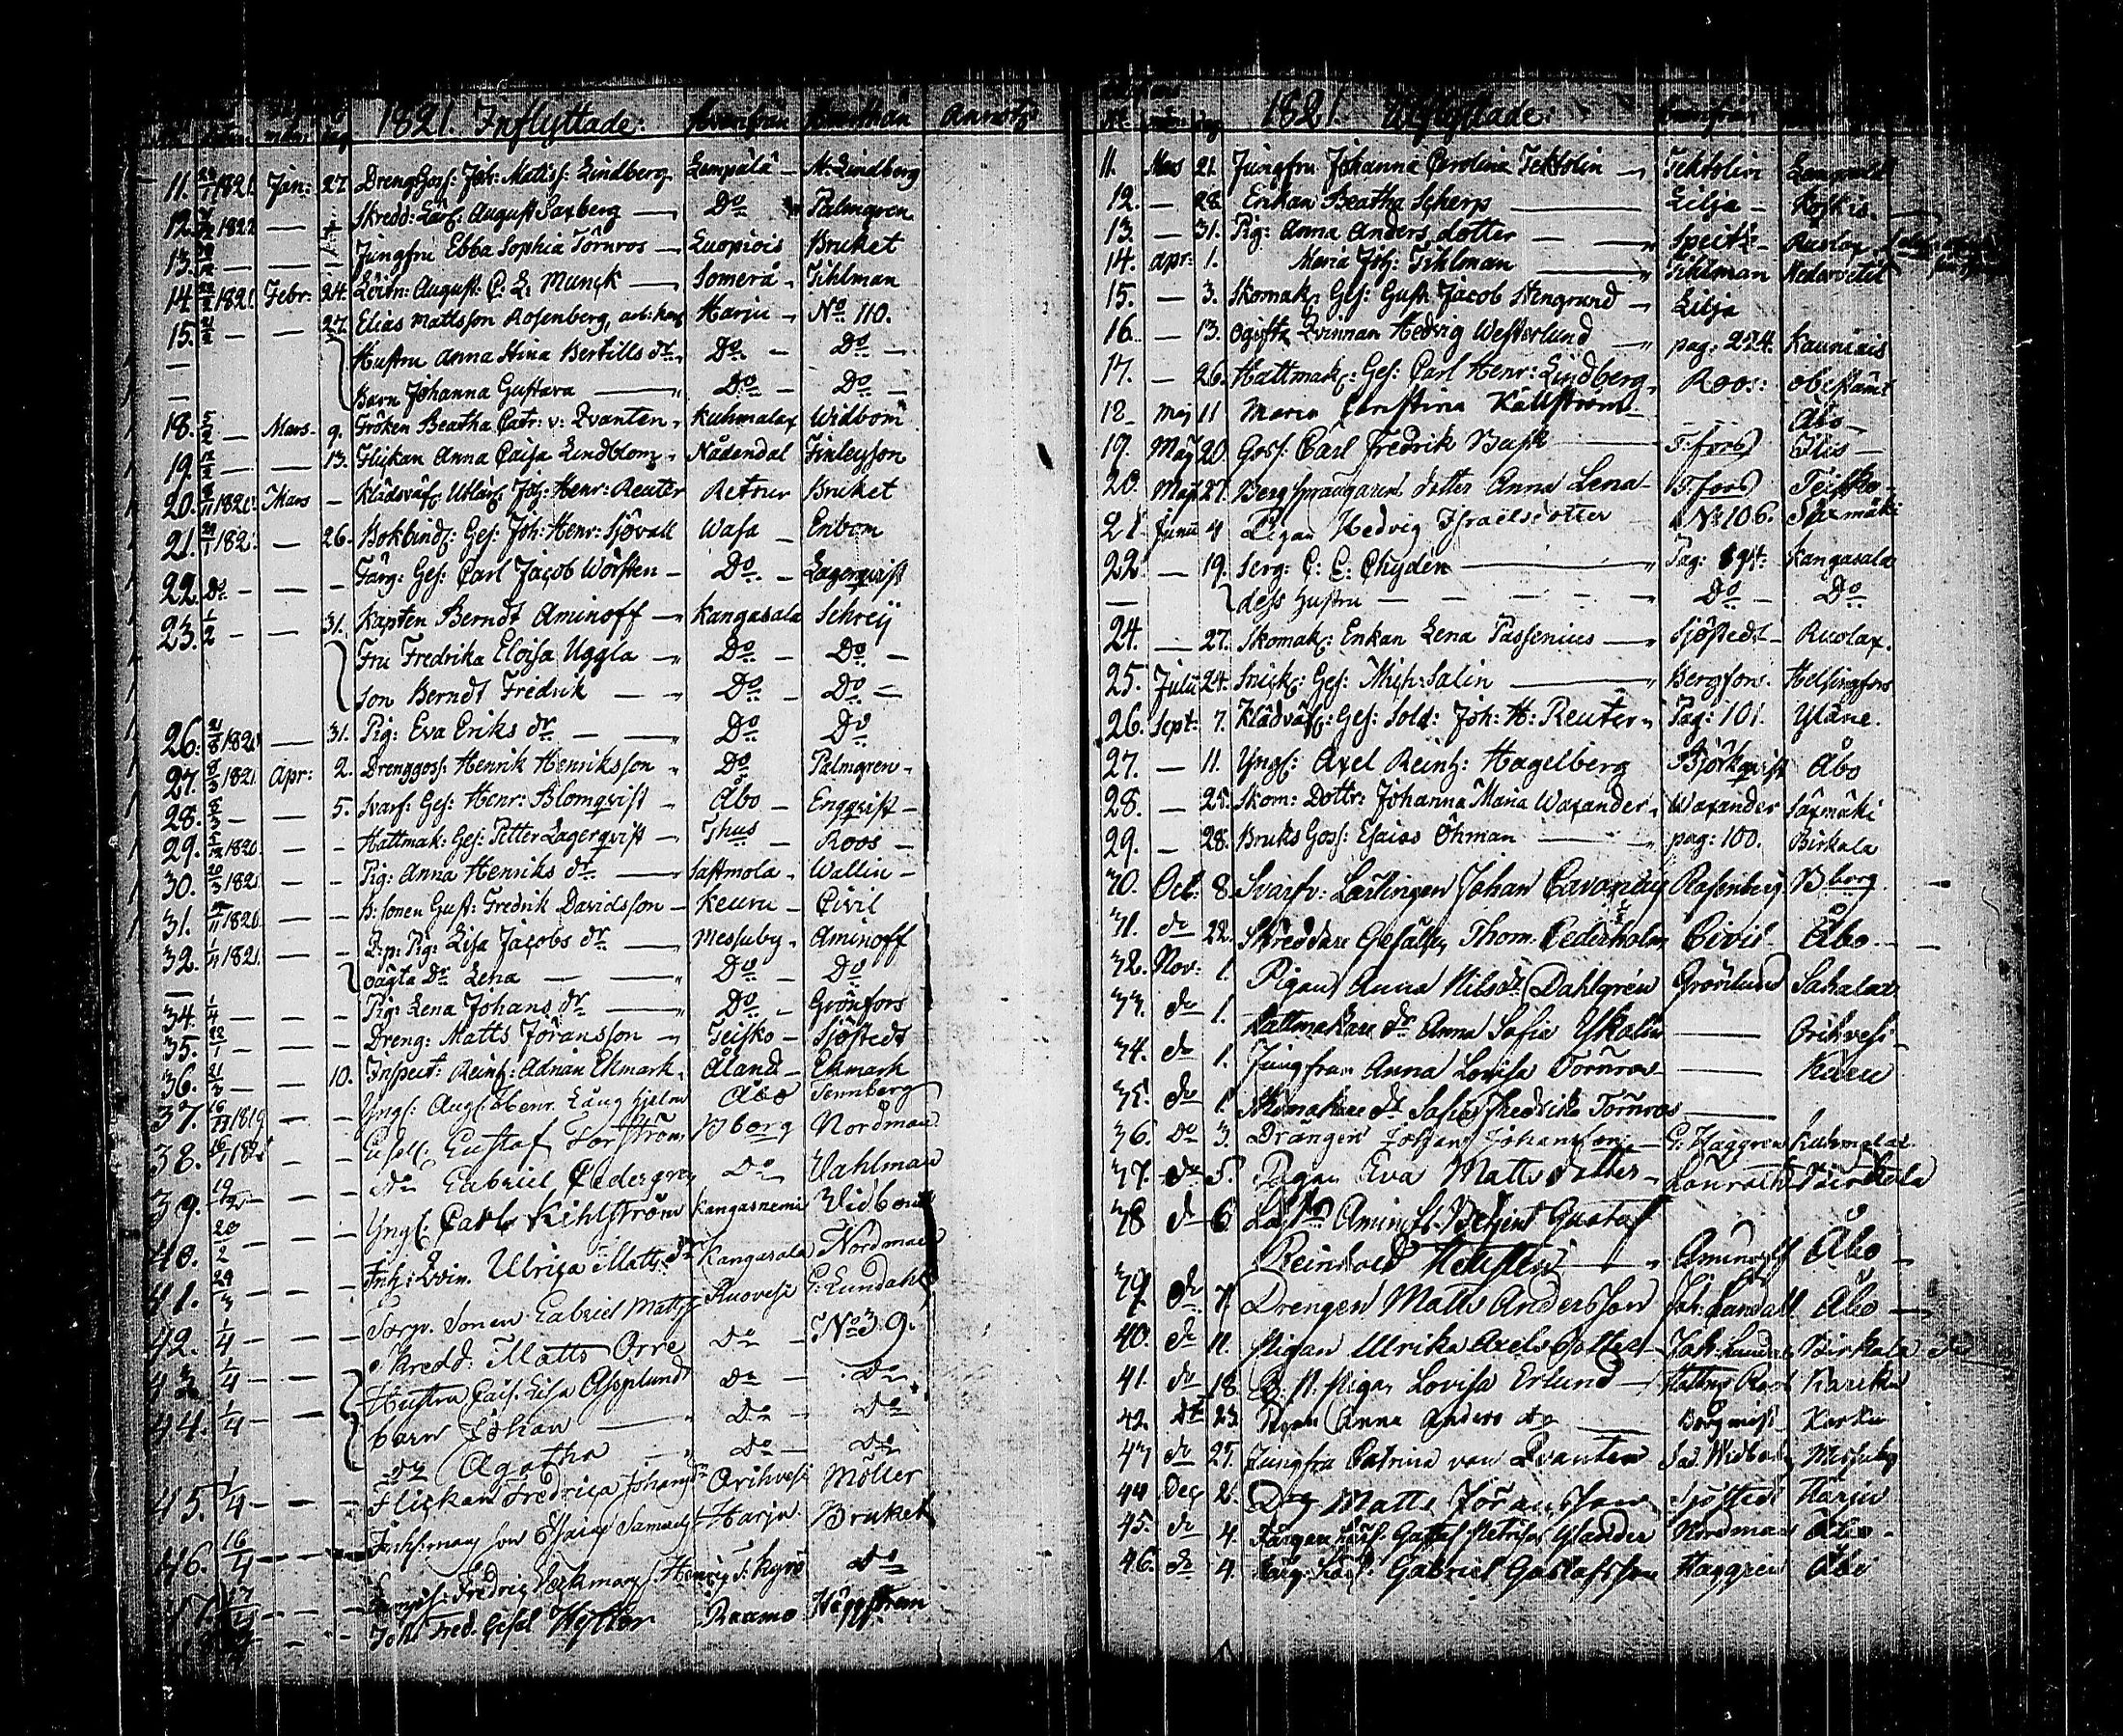 1821. Inflyttade: Hvarifrån Hvarthän Annot:
11. 1821. Jan: 27. Drenggoss: Joh: Matiss: Lindberg Lempälä – M: Lindberg
12. 1822 — Skredd: Lärl: August Saxberg — Do Palmgren
13. — — Jungfru Ebba Sophia Törnros — Luopiois Bruket
14. 1821. Febr: 24. Löitn: August: C. L. Munck — Somero – Tihlman
15. — — 27. Elias Mattsson Rosenberg, arb: karl Harju – No 110.
— Hustru Anna Stina Bertills dr. Do – Do –
— Barn Johanna Gustava — Do – Do –
18. 5/2 — Mars. 9. Fröken Beatha Catr: v: Qvanten, Kuhmalax Widbom
19. — — 13. Flickan Anna Caisa Lindblom, Nådendal Finleysson
20. 1820. Mars – Klädsväf: Utlärl: Joh: Henr: Reuter Retour Bruket
21. 182. — 26. Bokbind: Ges: Joh: Henr: Sjövall Wasa – Enbom
22. Do – — – Färg: Ges: Carl Jacob Wörsten – Do – Lagerqvist
23. 1/2 – — 31. Kapten Berndt Aminoff — Kangasala Schreij
Fru Fredrika Eloisa Uggla — Do – Do –
Son Berndt Fredrik — Do – Do –
26. 21/8 1820 — 31. Pig: Eva Eriks dr. — Do Do
27. 8/3 1821 Apr: 2. Drenggoss: Henrik Henriksson – Do Palmgren –
28. 8/3 – — 5. Svarf: Ges: Henr: Blomqvist – Åbo – Engqvist –
29. 1820. – – Hattmak: Ges: Petter Lagerqvist – Thus – Roos –
30. 20/3 182. – – Pig: Anna Henriks dr. — Sastmola – Wallin –
31. 1820. – – B: Sonen Gust: Fredrik Davidsson – Keuru – Civil
32. 182. – – Q: p: Pig: Lisa Jacobs dr. — Messuby – Aminoff
— oägta Dr. Lena — Do – Do
34. 1/4 – — – Pig: Lena Johans dr. — Do – Grönfors
35. 22/1 – — – Dreng: Matts Jöransson – Teisko – Sjöstedt
36. 21/3 – — 10. Inspect: Reinh: Adrian Ekmark, Åland – Ekmark
37. 1819. – – Yngl: Aug: Henr: Långhjelm Åbo Tennberg
38. 182 – – Gesell: Gustaf Forström Bborg Nordman
39. – – do Gabriel Cedergren do Wahlman
40. 20/2 – – Yngl: Carl Kihlström Kangasnemi Widbom
41. 29/3 – – Inh: Qvin. Ulrica Matts dr Kangasala Nordman
42. 1/4 – – Torp. Sonen Gabriel Mattss: Ruovesi G: Lundahl
43 1/4 – – Skredd: Matts Orre do – No 39.
44. 1/4 – – Hustru Cais: Lisa Assplund do – do
barn Johan — do – do
do Agatha — do – do
45. 1/4 – – Flickan Fredrica Johans dr Orihvesi Möller
46. 16/4 – – son Esaias Samuels: Harju Bruket
17/4 – – Fredric Henric: T: Kyrö do
Joh: Fred: Gesel Hyttör Raumo Häggström
1821. Utflyttade: Hvarifrån
11. Mars 21. Jungfru Johanna Carolina Tektolin — Tektolin
12. — 28. Enkan Beatha Scherp — Lilja – Koskis.
13. — 31. Pig: Anna Anders dotter — Speitz – Ruolax
14. Apr: 1. Maria Joh: Tihlman — Tihlman Nedervetil
15. — 3. Skomak: Ges: Gust: Jacob Stengrund – Lilja
16. — 13. Ogifta Qvinnan Hedvig Westerlund — pag: 224. Kauniais
17. — 26. Hattmak: Ges: Carl Henr: Lindberg, Roos: obestämt
18 Maj 11 Maria Christina Källström — Åbo –
19. Maj 20. Goss: Carl Fredrik Busk — T:fors Ilis –
20. Maj 27. Bergsprängaren dotter Anna Lena – T:fors Teisko –
21. Junii 4 Pigan Hedvig Israelsdotter — No 106. Säxmäki
22 — 19. Serg: C: E: Chydén — Pag: Kangasala
— dess hustru — Do – Do
24. — 27. Skomak: Enkan Lena Passenius — Sjöstedt – Ruolax.
25. Julii 24. Snick: Ges: Mich: Salin — Bergfors. Helsingfors
26. Sept: 7. Klädväf: Ges: Sold: Joh: H: Reuter – Pag: 101. Yläne.
27. — 11. Yngl: Axel Reinh: Hagelberg Björkqvist Åbo
28. — 25. Skom: Dottr: Johanna Maria Waxander – Waxander Säxmäki
29. — 28. Bruks Goss: Esaias Öhman — pag: 100. Birkala
30. Oct. 8. Svarfv: Lärlingen Johan Cavonius Rosenberg Bborg.
31. do 22. Skreddare Gesällen Thom: Cederholm Civil. Åbo. –
32. Nov: 1. Pigan Anna Nilsdr Dahlgrén Grönlund Sahalax
33. do 1. Hattmakare dr Anna Sofia Ykalin — Orihvesi –
34. do 1. Jungfrun Anna Lovisa Törnros — Karu
35. do 1. Skomakare dr Sofia Fredrika Törnros —
36. Do 3. Drängen Johan Johansson – G: Haggren Kuhmalax
37. do 5. Pigan Eva Matts dotter – Lönroth Birkala
38 do 6 Gustaf
Reinhold — Aminoff Åbo –
39 do 7. Drengen Matts Andersson Joh: Lundahl Åbo –
40. do 11. Pigan Ulrika Axels dotter – Joh: Lundahl Birkala
41. do 18. Pigan Lovisa Erlund – Hattm: Roos Karku
42. do 23. Pigan Anna Anders dr — Bergqvist Karku
43 do 25. Jungfru Catrina van Qvanten Widbom Messuby
44 Dec 2. Drg Matts Jöransson Sjöstedt Harju
45. do 4. Ylander Nordman Åbo –
46. do 4. Gabriel Gustafsson Haggren Åbo